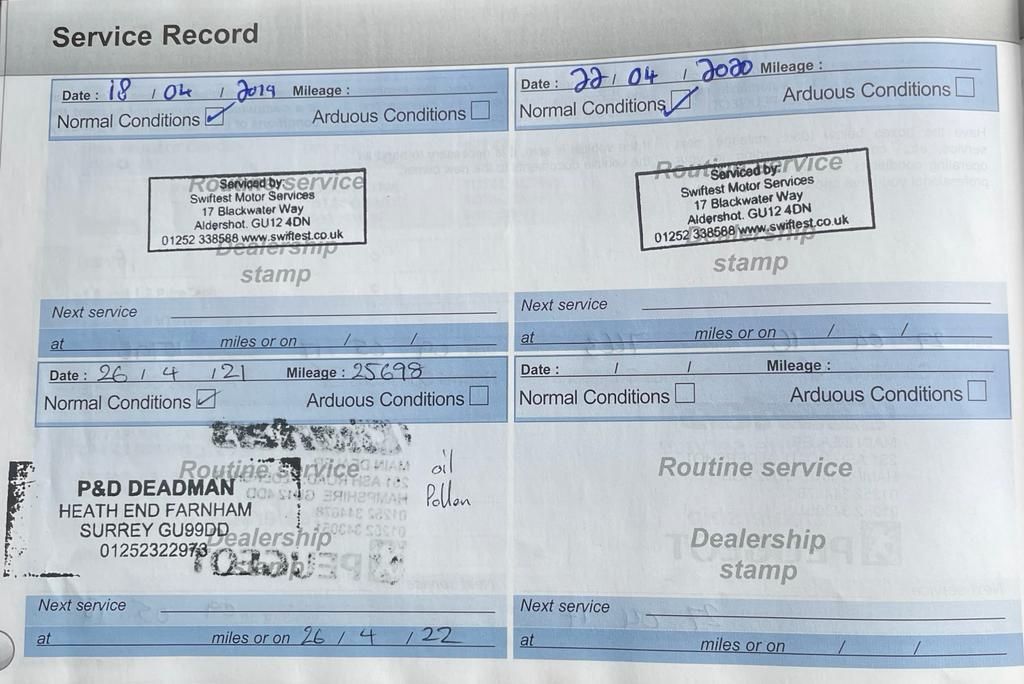 Service Record
Date : 18 / 04 / 2019 Mileage :
Normal Conditions Arduous Conditions
Routine service
Serviced by:
Swiftest Motor Services
17 Blackwater Way
Aldershot. GU12 4DN
01252 338588 www.swiftest.co.uk
Dealership
stamp
Next service
at miles or on / /
Date : 22 / 04 / 2020 Mileage :
Normal Conditions Arduous Conditions
Routine service
Serviced by:
Swiftest Motor Services
17 Blackwater Way
Aldershot. GU12 4DN
01252 338588 www.swiftest.co.uk
Dealership
stamp
Next service
at miles or on / /
Date : 26 / 4 / 21 Mileage : 25698
Normal Conditions Arduous Conditions
Routine service
P&D DEADMAN
HEATH END FARNHAM
SURREY GU99DD
01252322973
Dealership
stamp
oil
Pollen
Next service
at miles or on 26 / 4 / 22
Date : / / Mileage :
Normal Conditions Arduous Conditions
Routine service
Dealership
stamp
Next service
at miles or on / /